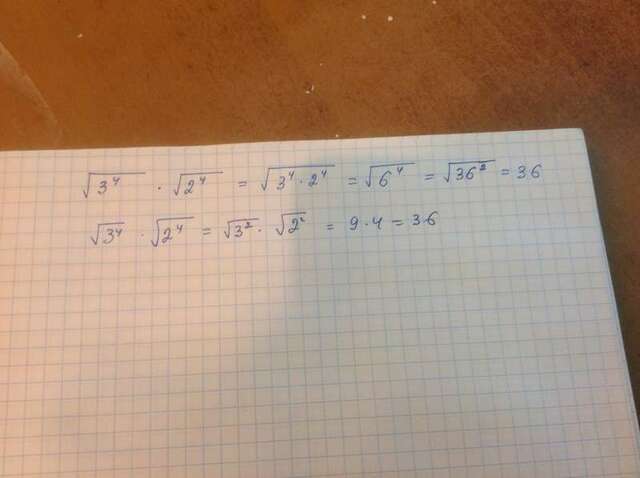 √3⁴ · √2⁴ = √3⁴·2⁴ = √6⁴ = √36² = 36
√3⁴ · √2⁴ = √3² · √2² = 9·4 = 36